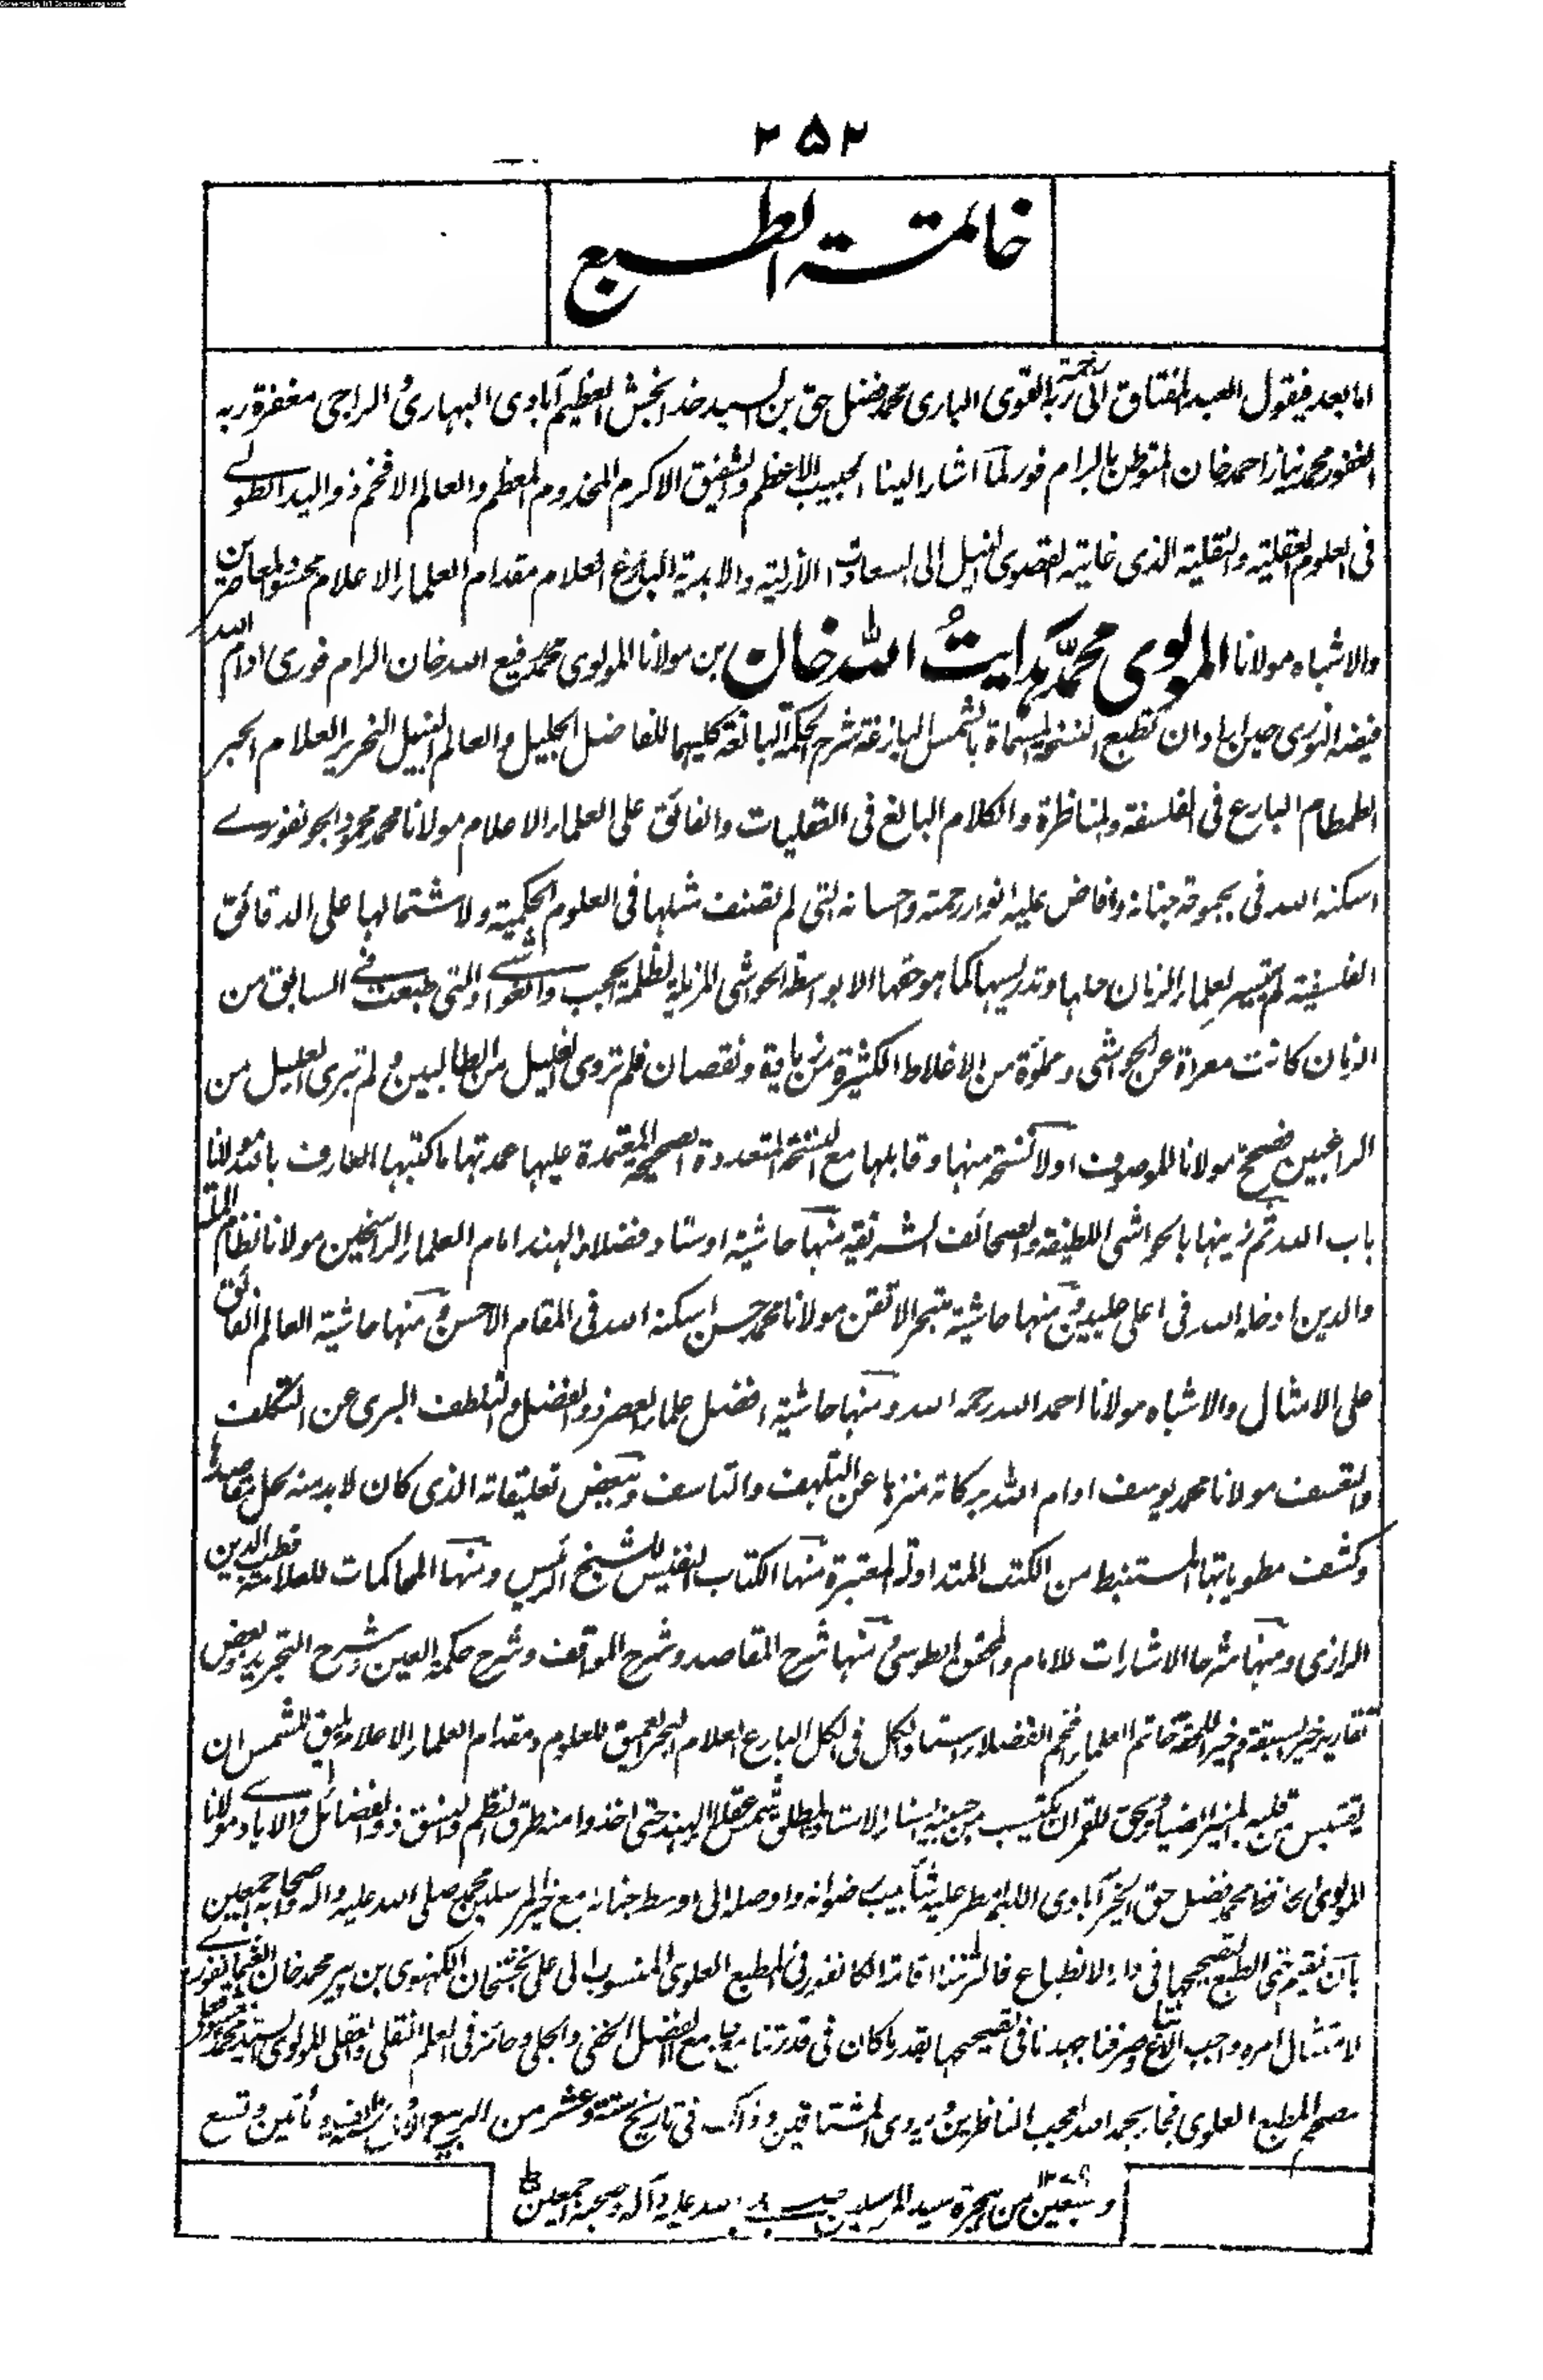 ۲۵۲
خاتمة الطبع
اما بعد فيقول العبد المفتاق الى رحمة ربه القوى البارى محمد فضل حق بن السيد خدا بخش العظيم آبادى البهارى الراجى مغفرة ربه
الغفور محمد نياز احمد خان المتوطن بالرام فور لما اشار الينا الحبيب الاعظم والشفيق الاكرم المخدوم المعظم والعالم الافخم ذو اليد الطولے
فى العلوم العقلية والنقلية الذى غايته القصوى النيل الى السعادات الأزلية والابدية البالغ العلام مقدام العلماء الاعلام محسود المعاصرين
والاشباه مولانا المولوى محمد هدايت الله خان بن مولانا المولوى محمد رفيع الله خان الرام فورى ادام الله
فيضه النورى حين اراد ان تطبع النسخة المسماة بالشمس البازغة شرح الحكمة البالغة كليهما للفاضل الجليل والعالم النبيل النحرير العلام الحبر
الطمطام البارع فى الفلسفة والمناظرة والكلام البالغ فى النقليات والفائق على العلماء الاعلام مولانا محمد محمود الجونفورے
اسكنه الله فى بحبوحة جنانه وافاض عليه انوار رحمته واحسانه التى لم تصنف مثلها فى العلوم الحكمية ولاشتمالها على الدقائق
الفلسفية لم يتيسر لعلماء الزمان حلها وتدريسها كما هو حقها الا بواسطة الحواشى المزيلة لظلمة الحجب والغواشے والتى طبعت فے السابق من
الزمان كانت معراة عن الحواشى ومملوة من الاغلاط الكثيرة من زيادة ونقصان فلم تروى الغليل من الطالبين ولم تبرى العليل من
الراغبين فصحح مولانا الموصوف اولا نسخة منها وقابلها مع النسخ المتعددة الصحيحة المعتمدة عليها عمدتها ما كتبها العارف بالله مولانا
باب الله ثم زينها بالحواشى اللطيفة والصحائف الشريفة منها حاشية اوستاد فضلاء الهند امام العلماء الراسخين مولانا نظام الملة
والدين ادخله الله فى اعلى عليين ومنها حاشية متبحر الاتقن مولانا محمد حسن اسكنه الله فى المقام الاحسن ومنها حاشية العالم الفائق
على الامثال والاشباه مولانا احمد الله رحمه الله ومنها حاشية افضل علماء العصر ذو الفضل والتلطف البرى عن التكلف
والتعسف مولانا محمد يوسف ادام الله بركاته منزها عن التلهف والتاسف وببعض تعليقاته الذى كان لابد منه لحل مقاصدها
وكشف مطوياتها المستنبط من الكتب المتداولة المعتبرة منها الكتاب النفيس للشيخ الرئيس ومنها المحاكمات للعلامة قطب الدين
الرازى ومنها شرحا الاشارات للامام والمحقق الطوسى ومنها شرح المقاصد وشرح المواقف وشرح حكمة العين وشرح التجريد وبعض
تقارير خير السبقة وخير اللحقة خاتم العلماء فخم الفضلاء استاد الكل فى الكل البارع العلام البحر العميق للعلوم ومقدام العلماء الاعلام يليق للشمس ان
يقتبس من قلبه المنير الضياء ويحق للقمر ان يكتسب من جبينه السناء الاستاد المطلق شمس عقلاء الهند حتى اخذوا منه طرق النظم والنسق ذو الفضائل والايادے مولانا
المولوى الحافظ محمد فضل حق الخير آبادى اللهم امطر عليه شآبيب رضوانه واوصله الى اوسط جنانه مع خير المرسلين محمد صلى الله عليه واله واصحابه اجمعين
بان نقيم حتى الطبع لتصحيحها فى دار الانطباع فالتزمنا اقامة الكانفور فى المطبع العلوى المنسوب الى على بخش خان الكهنوى بن پير محمد خان
لامتثال امره واجب الاتباع وصرفنا جهدنا فى تصحيحها بقدر ما كان فى قدرتنا مع جامع الفضل الخفى والجلى وحائز فى العلم النقلى والعقلى المولوى السيد محمد
مصحح المطبع العلوى فجاء بحمد الله يعجب الناظرين ويروى المشتاقين وذلك فى تاريخ ستة وعشر من الربيع سنة الف ومأتين وتسع
وسبعين ۱۲۷۹ من هجرة سيد المرسلين صلى الله عليه وآله وصحبه اجمعين